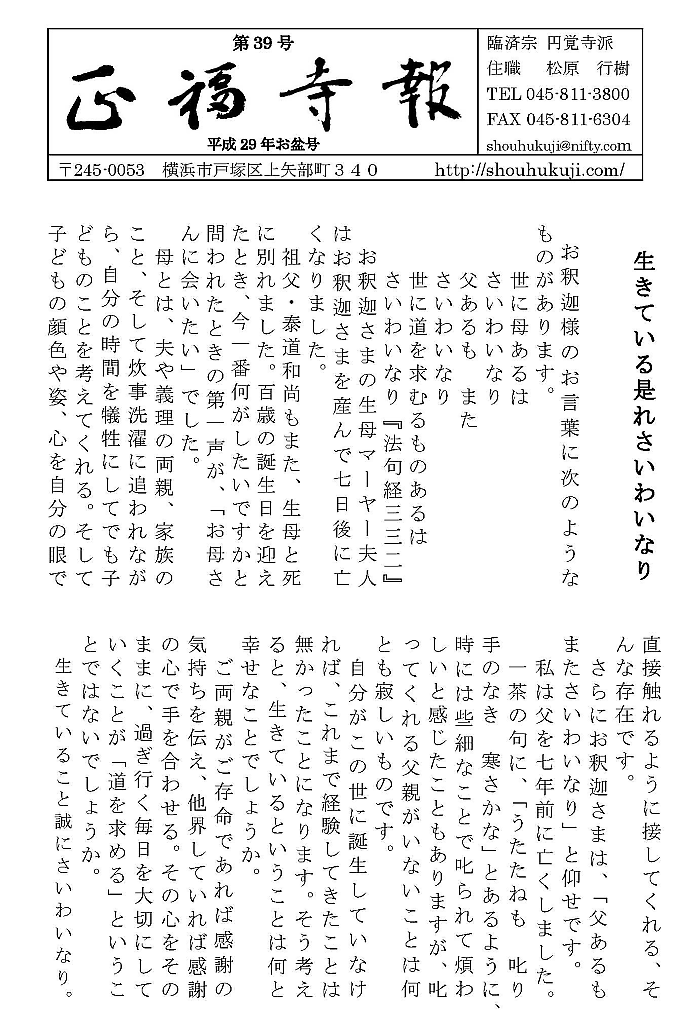 第39号
正福寺報
平成29年お盆号
臨済宗 円覚寺派
住職 松原 行樹
TEL 045-811-3800
FAX 045-811-6304
shouhukuji@nifty.com
〒245-0053 横浜市戸塚区上矢部町３４０ http://shouhukuji.com/
生きている是れさいわいなり
お釈迦様のお言葉に次のような
ものがあります。
世に母あるは
さいわいなり
父あるも また
さいわいなり
世に道を求むるものあるは
さいわいなり『法句経三三二』
お釈迦さまの生母マーヤー夫人
はお釈迦さまを産んで七日後に亡
くなりました。
祖父・泰道和尚もまた、生母と死
に別れました。百歳の誕生日を迎え
たとき、今一番何がしたいですかと
問われたときの第一声が、「お母さ
んに会いたい」でした。
母とは、夫や義理の両親、家族の
こと、そして炊事洗濯に追われなが
ら、自分の時間を犠牲にしてでも子
どものことを考えてくれる。そして
子どもの顔色や姿、心を自分の眼で
直接触れるように接してくれる、そ
んな存在です。
さらにお釈迦さまは、「父あるも
またさいわいなり」と仰せです。
私は父を七年前に亡くしました。
一茶の句に、「うたたねも 叱り
手のなき 寒さかな」とあるように、
時には些細なことで叱られて煩わ
しいと感じたこともありますが、叱
ってくれる父親がいないことは何
とも寂しいものです。
自分がこの世に誕生していなけ
れば、これまで経験してきたことは
無かったことになります。そう考え
ると、生きているということは何と
幸せなことでしょうか。
ご両親がご存命であれば感謝の
気持ちを伝え、他界していれば感謝
の心で手を合わせる。その心をその
ままに、過ぎ行く毎日を大切にして
いくことが「道を求める」というこ
とではないでしょうか。
生きていること誠にさいわいなり。